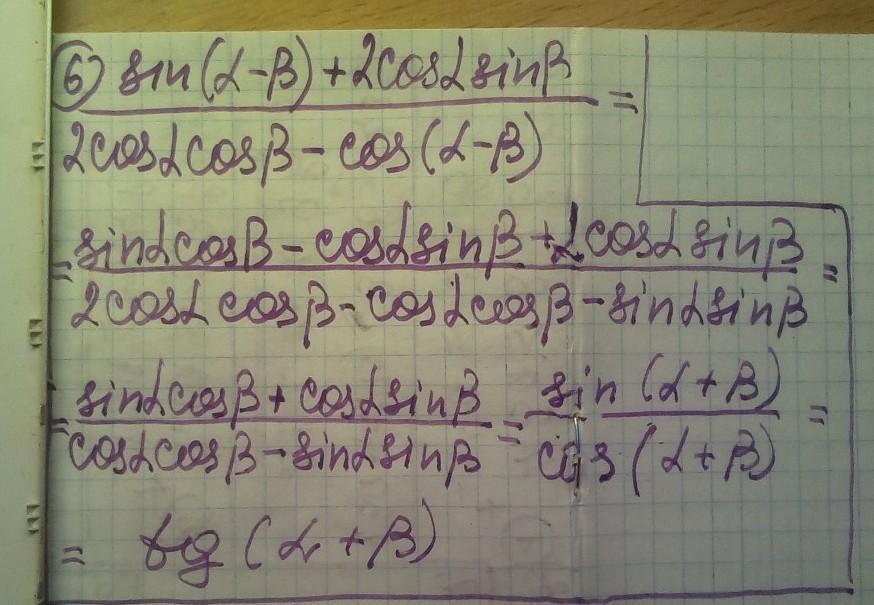 6) sin(α-β)+2cosα sinβ =
2cosα cosβ - cos(α-β)
= sinα cosβ - cosα sinβ + 2cosα sinβ =
2cosα cosβ - cosα cosβ - sinα sinβ
= sinα cosβ + cosα sinβ = sin(α+β) =
cosα cosβ - sinα sinβ cos(α+β)
= tg(α+β)